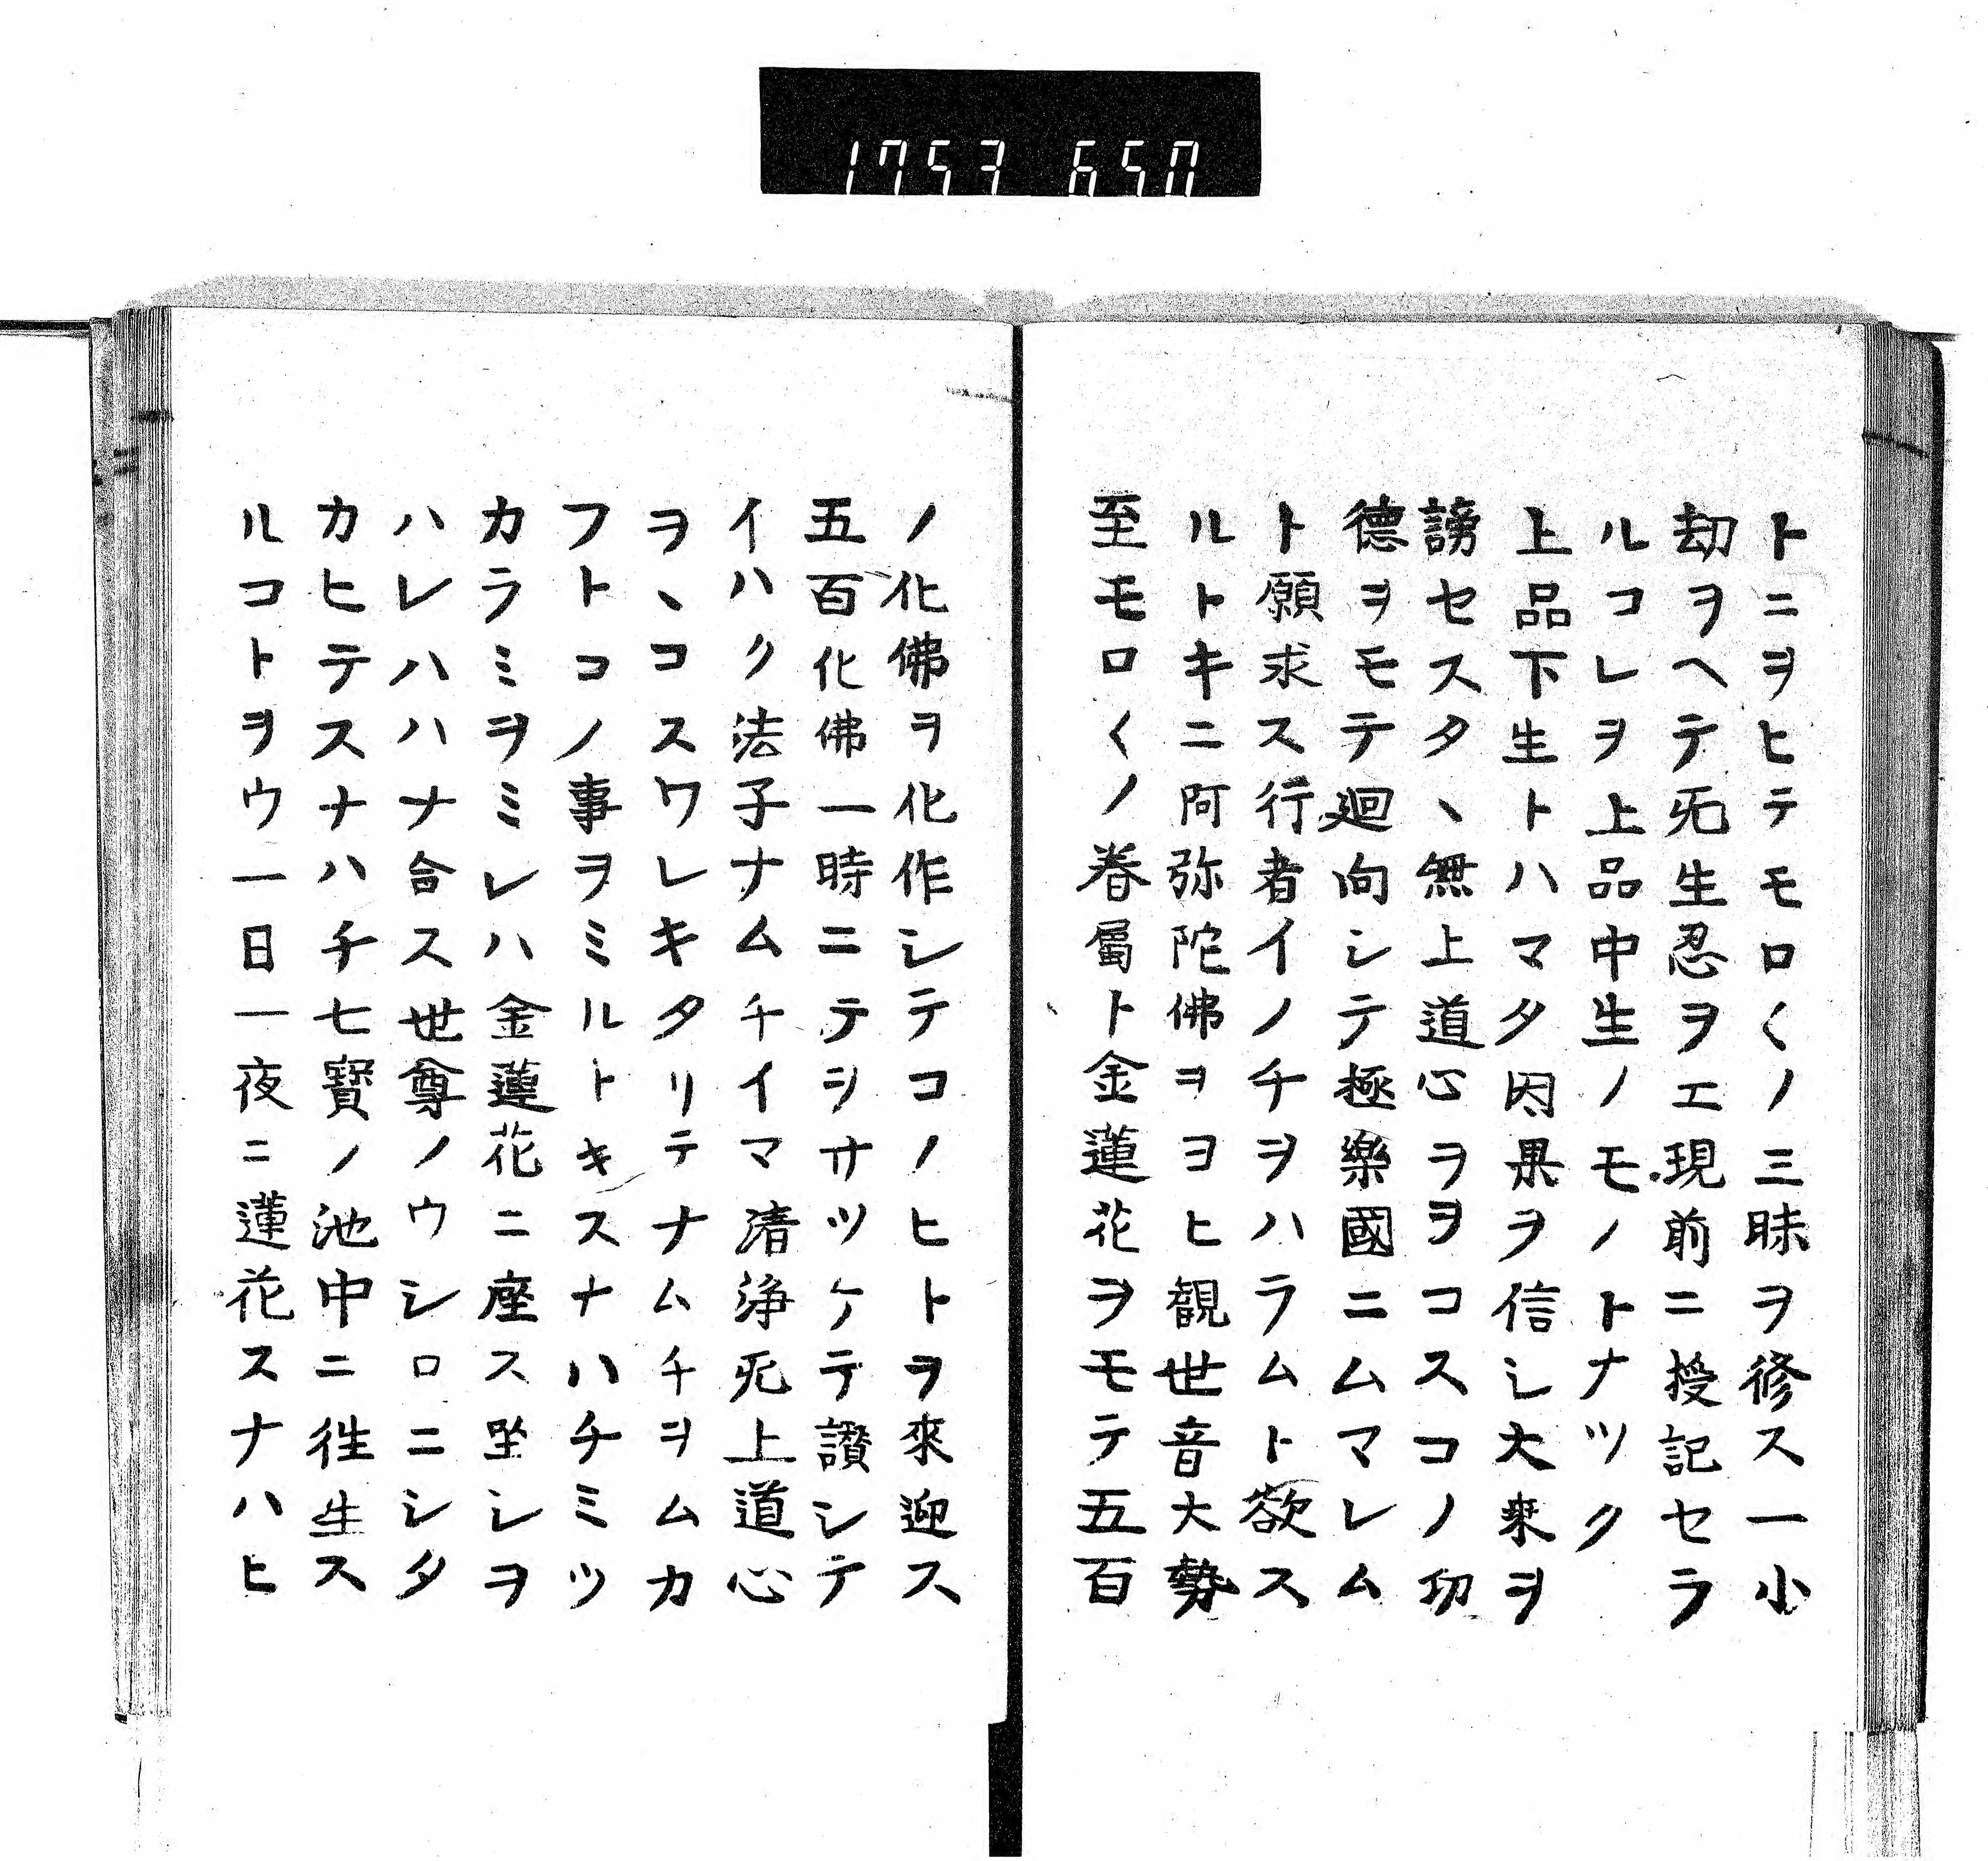 1753 650
トニヲヒテモロ〱ノ三昧ヲ修ス一小
劫ヲヘテ旡生忍ヲエ現前ニ授記セラ
ルコレヲ上品中生ノモノトナツク
上品下生トハマタ因果ヲ信シ大乗ヲ
謗セスタヽ無上道心ヲヲコスコノ功
德ヲモテ迴向シテ極樂國ニムマレム
ト願求ス行者イノチヲハラムト欲ス
ルトキニ阿弥陀佛ヲヨヒ観世音大勢
至モロ〱ノ眷屬ト金蓮花ヲモテ五百
ノ化佛ヲ化作シテコノヒトヲ來迎ス
五百化佛一時ニテヲサツケテ讃シテ
イハク法子ナムチイマ清浄旡上道心
ヲヽコスワレキタリテナムチヲムカ
フトコノ事ヲミルトキスナハチミツ
カラミヲミレハ金蓮花ニ座ス坐シヲ
ハレハハナ合ス世尊ノウシロニシタ
カヒテスナハチ七寳ノ池中ニ徃生ス
ルコトヲウ一日一夜ニ蓮花スナハヒ